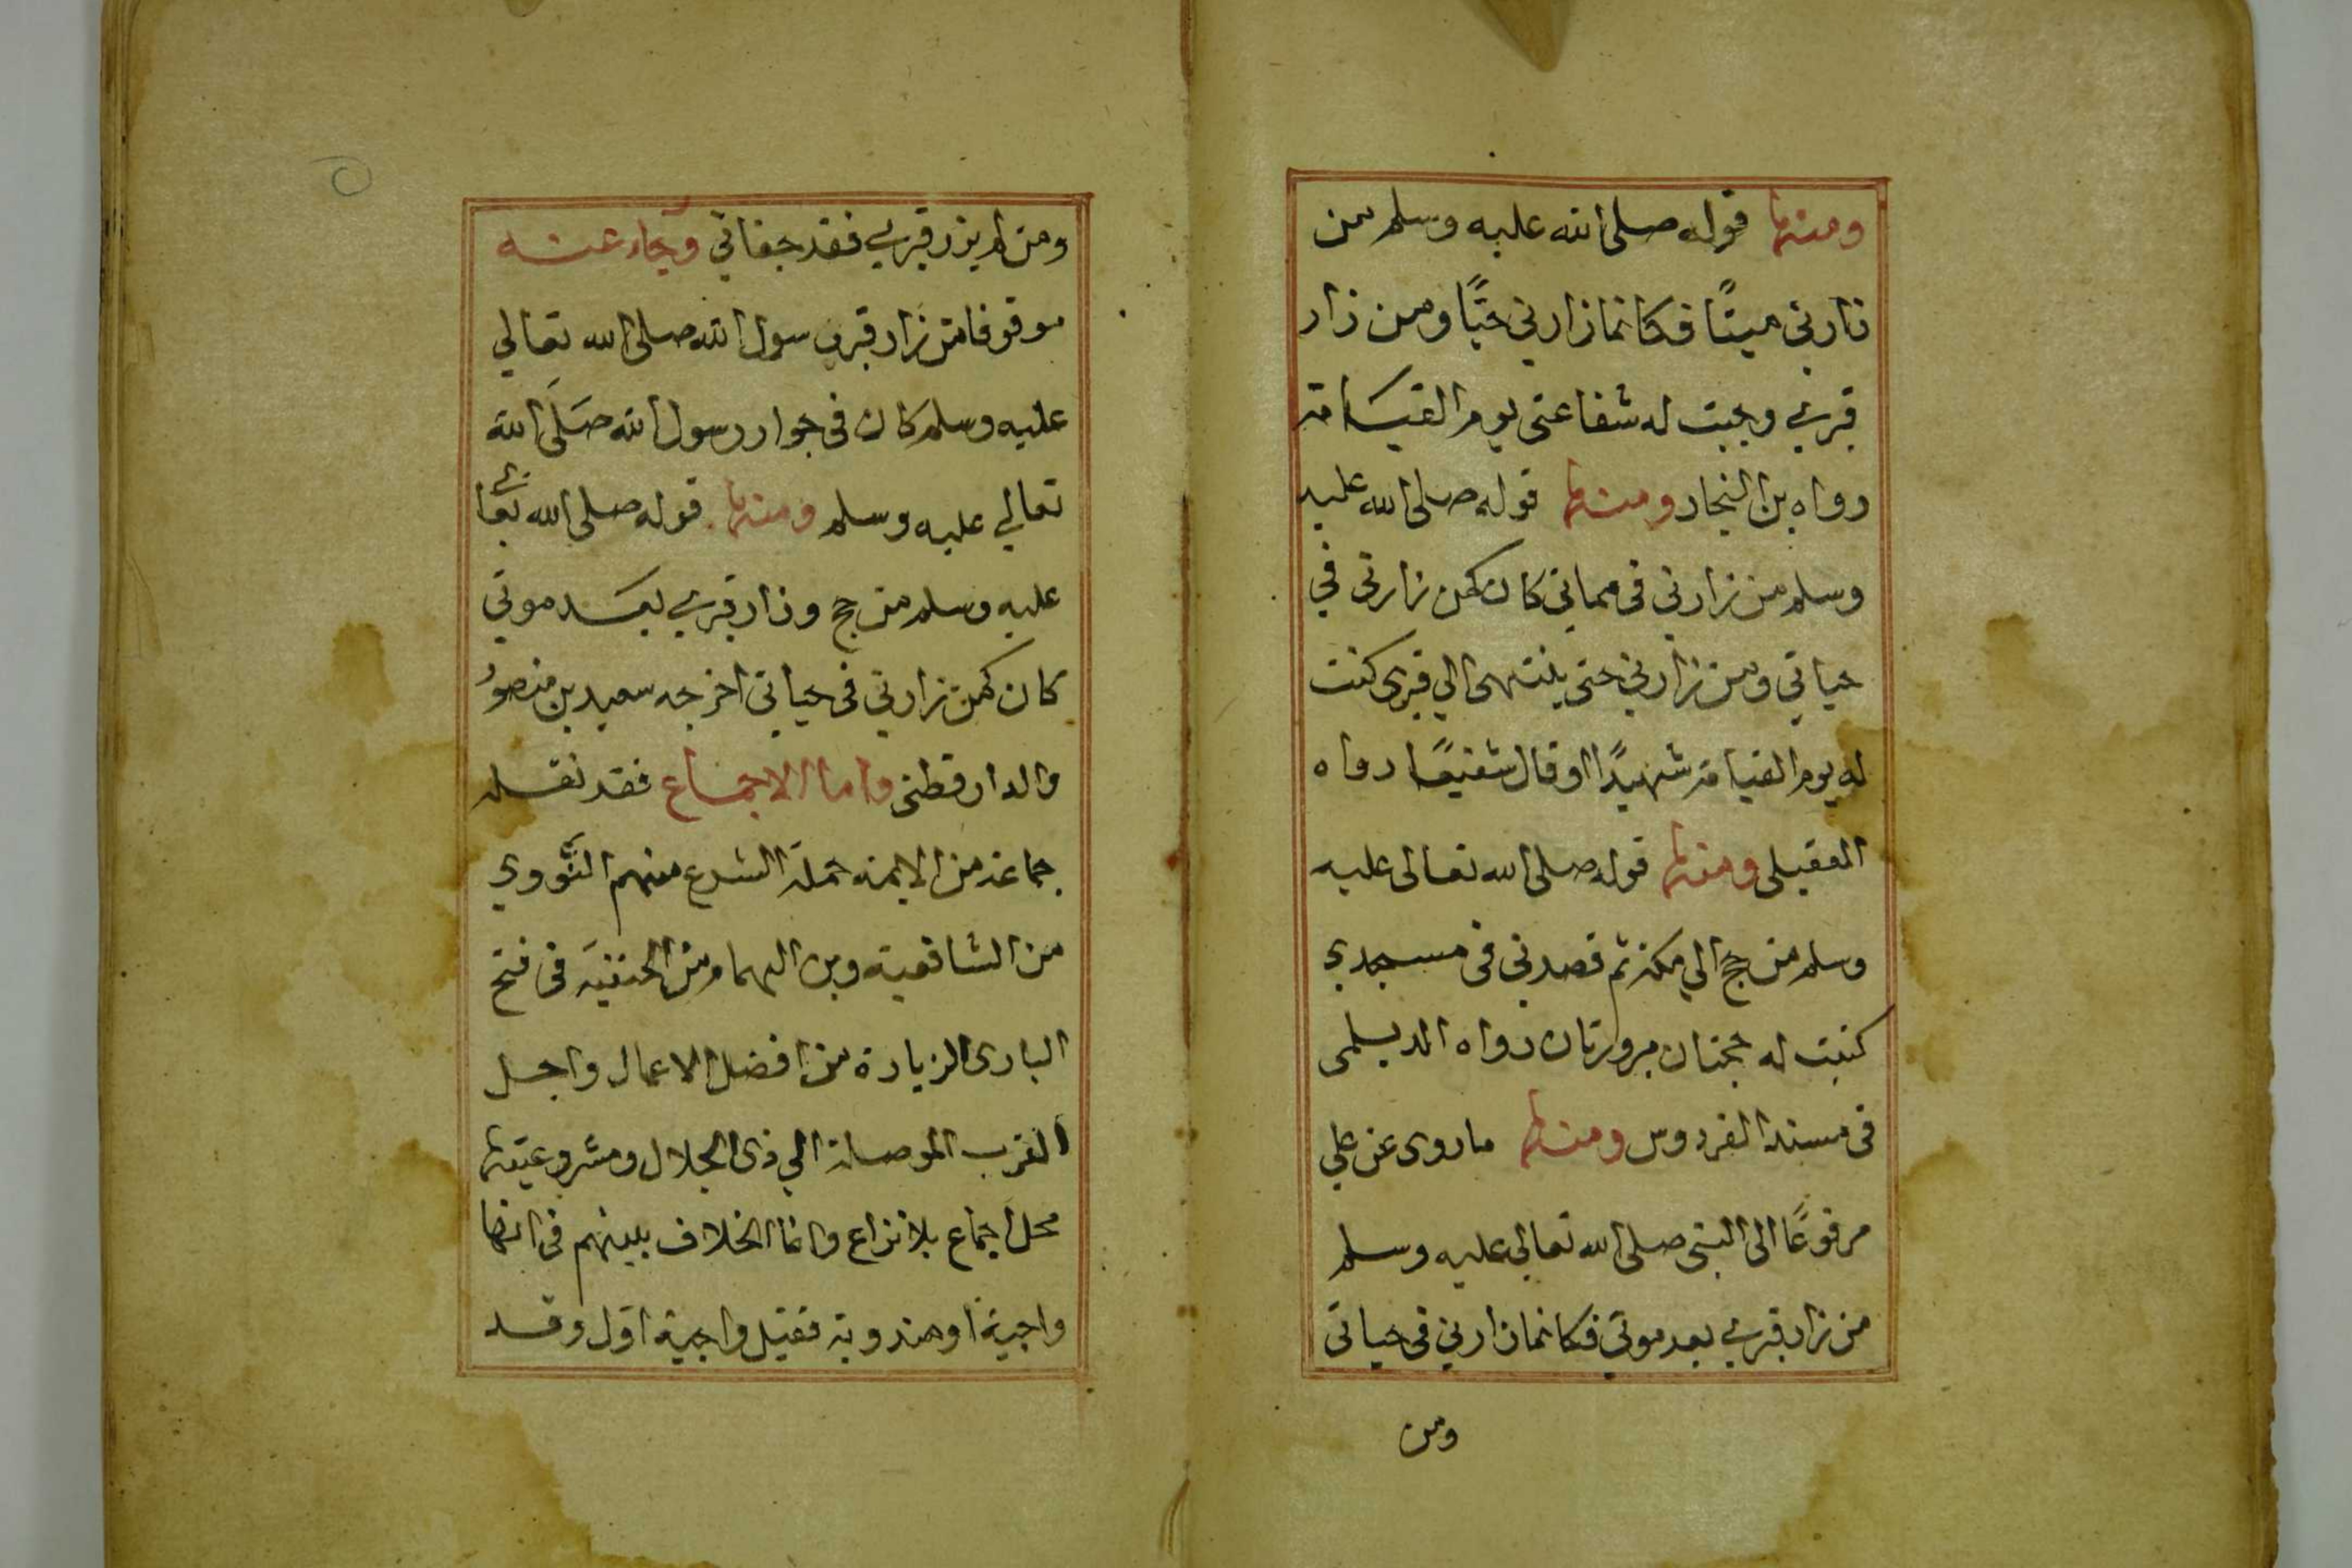 ومنها قوله صلى الله عليه وسلم من
زارني ميتًا فكانما زارني حيًّا ومن زار
قبري وجبت له شفاعتى يوم القيامة
رواه بن النجار ومنها قوله صلى الله عليه
وسلم من زارني فى مماتى كان كمن زارنى في
حياتي ومن زارني حتى ينتهى الي قبرى كنت
له يوم القيامة شهيدًا اوقال شفيعًا رواه
العقيلى ومنها قوله صلى الله تعالى عليه
وسلم من حج الي مكة ثم قصدنى فى مسجدي
كتبت له حجتان مبرورتان رواه الديلمى
فى مسند الفردوس ومنها ماروى عن علي
مرفوعًا الى النبى صلى الله تعالى عليه وسلم
من زار قبري بعد موتى فكانما زارني فى حياتى
ومن
ومن لم يزر قبري فقد جفاني وجاء عنه
موقوفا من زار قبر رسول الله صلى الله تعالي
عليه وسلم كان فى جوار رسول الله صَلَى الله
تعالي عليه وسلم ومنها قوله صلى الله تعالى
عليه وسلم من حج وزار قبري بعد موتي
كان كمن زارني فى حياتى اخرجه سعيد بن منصور
والدارقطنى واما الاجماع فقد نقله
جماعة من الايمه حملة الشرع منهم النَّووي
من الشافعية وبن الهمام من الحنفية فى فتح
البارى الزيارة من افضل الاعمال واجل
القرب الموصلة الي ذى الجلال ومشروعيتها
محل اجماع بلا نزاع وانما الخلاف بينهم فى انها
واجبة اومندوبة فقيل واجبة اول وقد